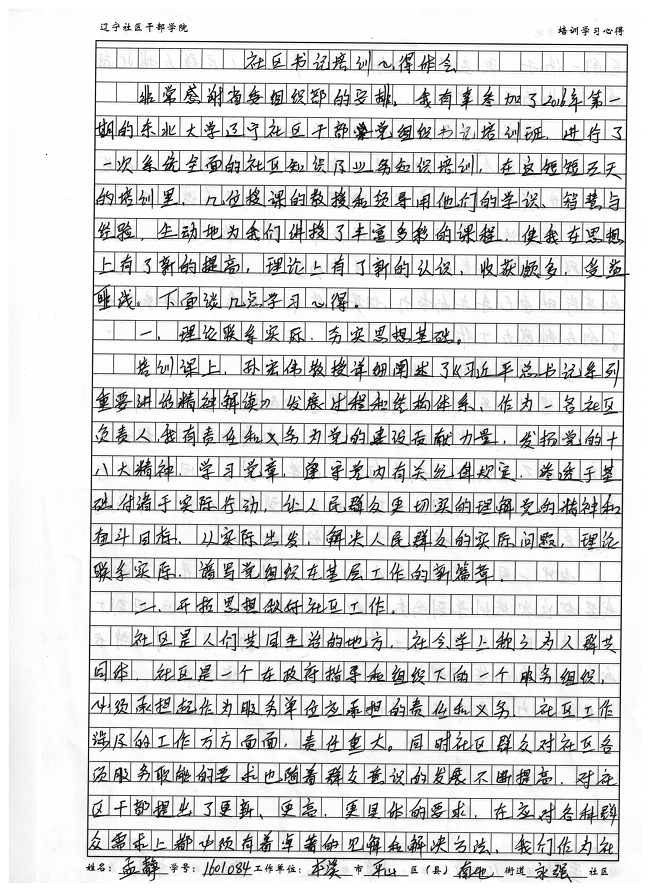 辽宁社区干部学院 培训学习心得
社区书记培训心得体会
非常感谢省委组织部的安排，我有幸参加了2016年第一
期的东北大学辽宁社区干部党组织书记培训班，进行了
一次系统全面的社区知识及业务知识培训，在这短短五天
的培训里，几位授课的教授和领导用他们的学识、智慧与
经验，生动地为我们讲授了丰富多彩的课程，使我在思想
上有了新的提高，理论上有了新的认识，收获颇多，受益
匪浅。下面谈几点学习心得。
一、理论联系实际，夯实思想基础。
培训课上，孙宏伟教授详细阐述了《习近平总书记系列
重要讲话精神解读》发展过程和结构体系，作为一名社区
负责人我有责任和义务为党的建设贡献力量，发扬党的十
八大精神，学习党章，遵守党内有关纪律规定，渗透于基
础付诸于实际行动，让人民群众更切实的理解党的精神和
奋斗目标，从实际出发，解决人民群众的实际问题，理论
联系实际，谱写党组织在基层工作的新篇章。
二、开拓思想做好社区工作。
社区是人们共同生活的地方，社会学上称之为人群共
同体，社区是一个在政府指导和组织下的一个服务组织，
必须承担起作为服务单位应承担的责任和义务，社区工作
涉及的工作方方面面，责任重大。同时社区群众对社区各
项服务职能的要求也随着群众意识的发展不断提高，对社
区干部提出了更新、更高、更具体的要求，在应对各种群
众需求上都必须有着卓著的见解和解决方法，我们作为社
姓名：孟静 学号：1601084 工作单位：本溪 市 平山 区（县） 南地 街道 永强 社区